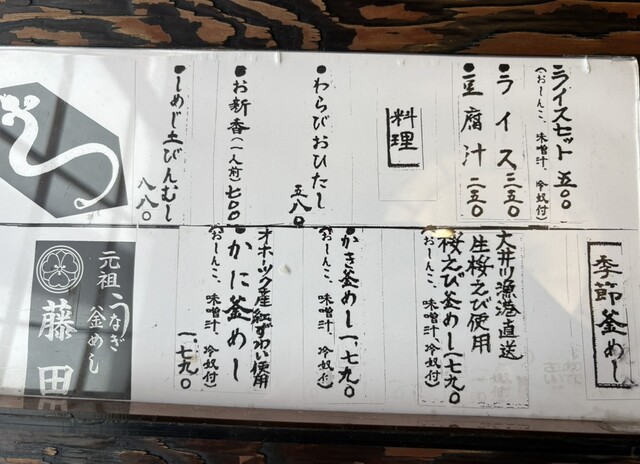 ライスセット 五〇〇
（おしんこ、味噌汁、冷奴付）
●ライス 二五〇
●豆腐汁 二五〇
料理
●わらびおひたし 五八〇
●お新香（一人前）七〇〇
●しめじ土びんむし 八八〇
季節釜めし
大井川漁港直送
生桜えび使用
桜えび釜めし 一、七九〇
（おしんこ、味噌汁、冷奴付）
●かき釜めし 一、七九〇
（おしんこ、味噌汁、冷奴付）
オホーツク産紅ずわい使用
●かに釜めし
（おしんこ、味噌汁、冷奴付）
一、七九〇
元祖うなぎ釜めし
藤田